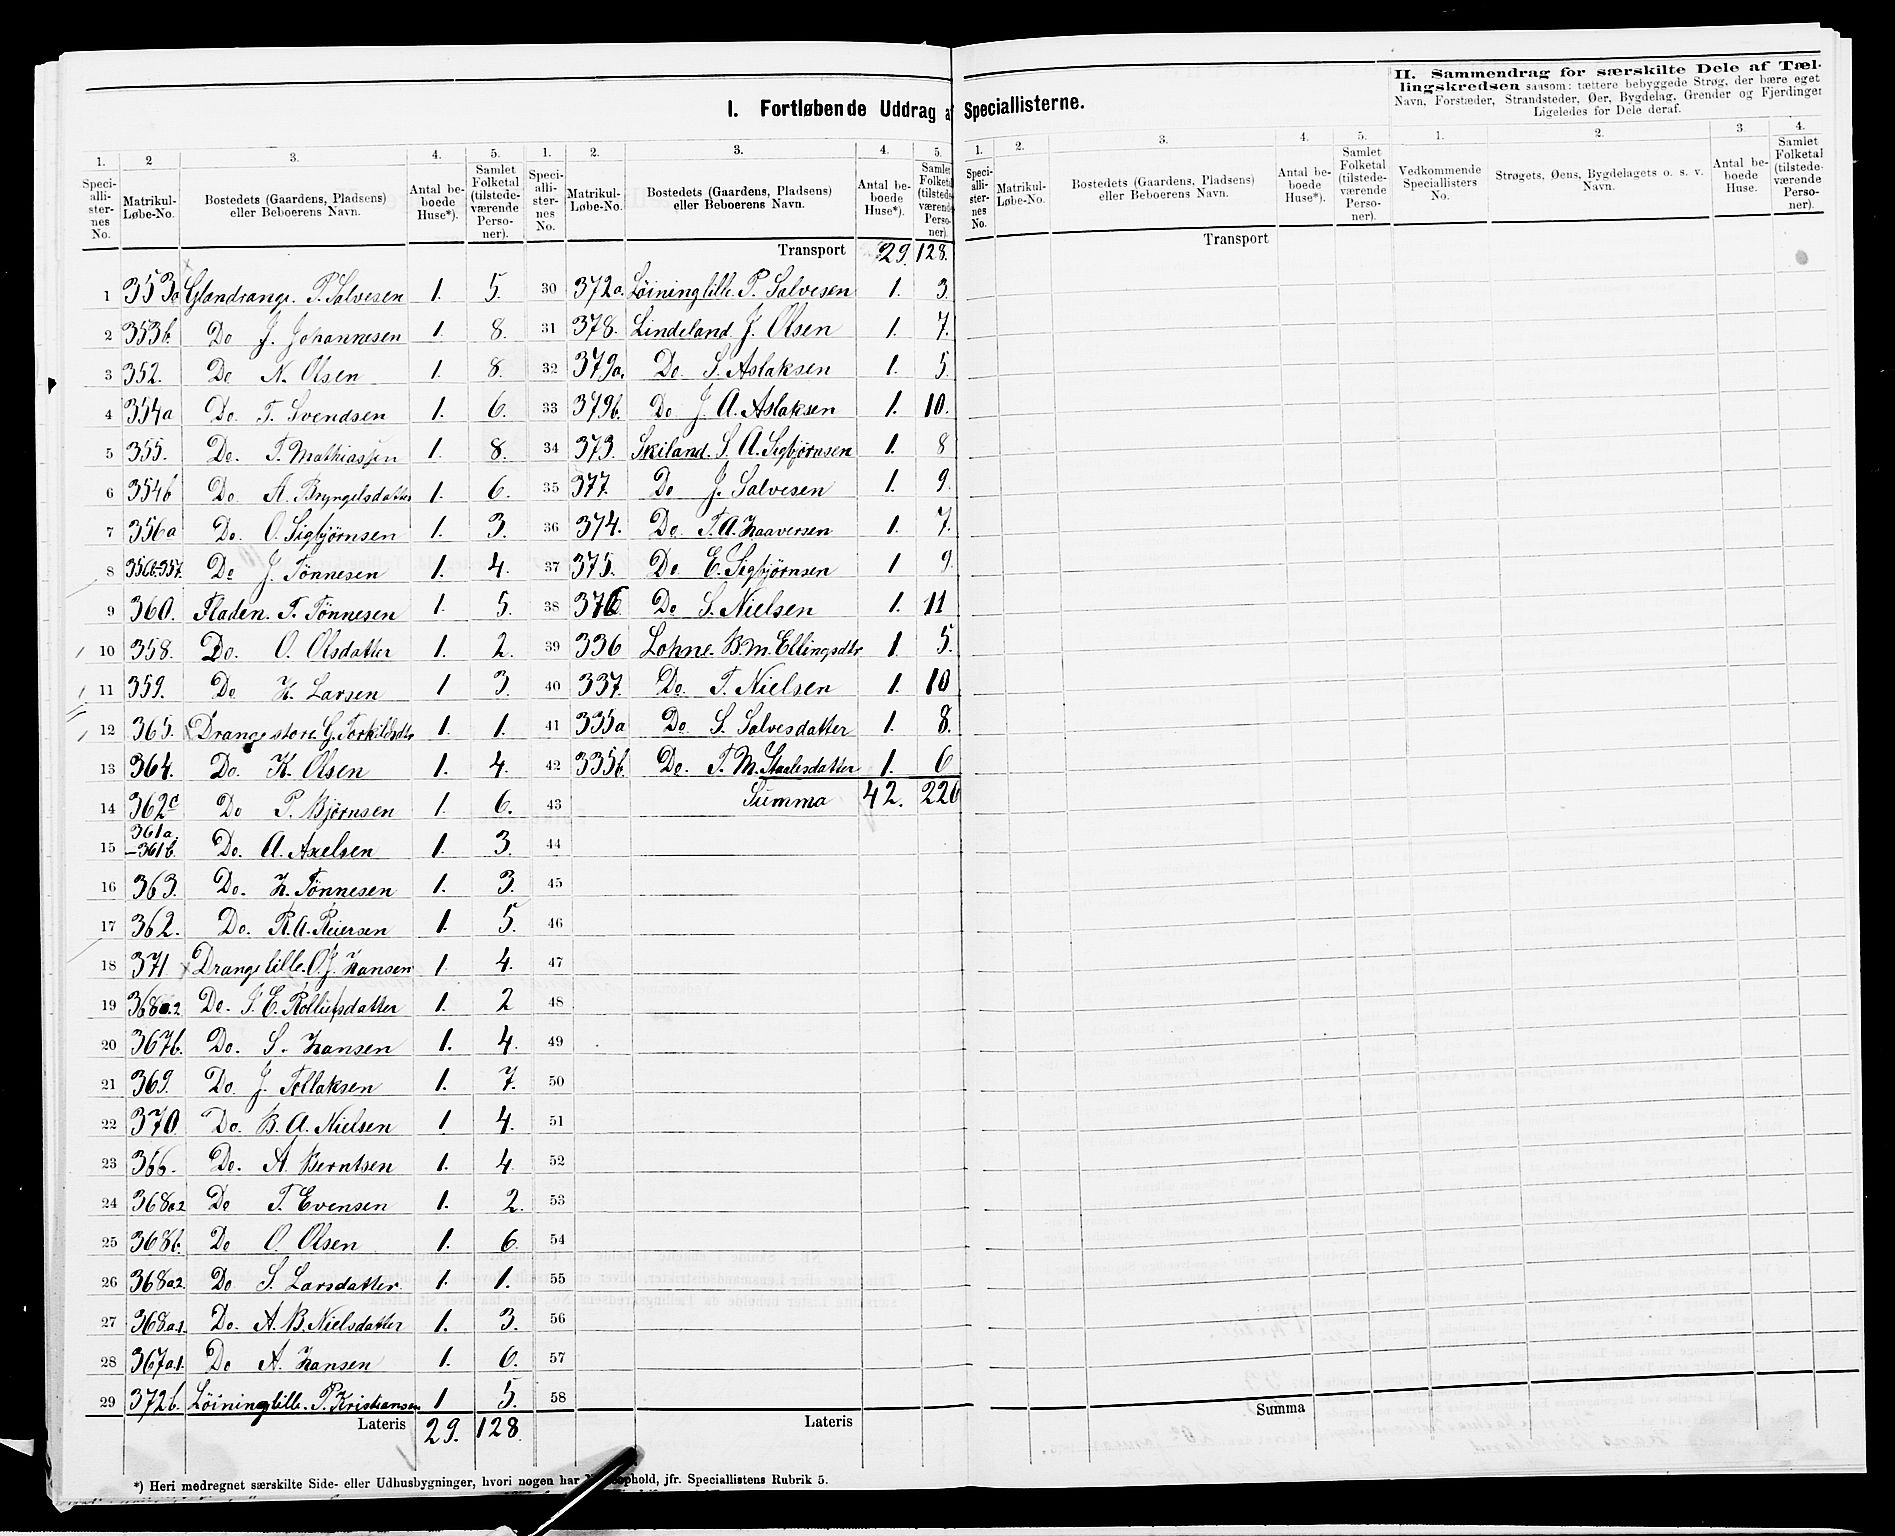 I. Fortløbende Uddrag af Speciallisterne.
II. Sammendrag for særskilte Dele af Tællingskredsen saasom: tættere bebyggede Strøg, der bære eget
Navn, Forstæder, Strandsteder, Øer, Bygdelag, Grender og Fjerdinger
Ligeledes for Dele deraf.
1. 2 3. 4. 5.
Speciallisternes No. Matrikul-Løbe-No. Bostedets (Gaardens, Pladsens) eller Beboerens Navn. Antal beboede Huse*). Samlet Folketal (tilstedeværende Personer).
1 353a Glandrange. P. Salvesen 1. 5.
2 353b. Do J. Johannesen 1. 8.
3 352. Do N. Olsen 1. 8.
4 354a Do. T. Svendsen 1. 6.
5 355. Do. T. Mathiassen 1. 8.
6 354b Do. A. Bryngelsdatter 1. 6.
7 356a Do. O. Sigbjørnsen 1. 3.
8 356b-357. Do J. Tønnesen 1. 4.
9 360. Fladen. T. Tønnesen 1. 5.
10 358. Do. O. Olsdatter 1. 2.
11 359. Do H. Larsen 1 3.
12 365. Drange store. G. Torkildsdtr 1. 1.
13 364. Do. K. Olsen 1. 4.
14 362c Do P. Bjørnsen 1. 6.
15 361a.-361b. Do. A. Axelsen 1. 3.
16 363. Do. H. Tønnesen 1. 3.
17 362. Do. R. A. Reiersen 1. 5.
18 371 Drange lille. O. J. Hansen 1. 4.
19 368a.2 Do. E. Rolliefsdatter 1. 2
20 367b. Do. S. Hansen 1. 4.
21 369. Do J. Tollaksen 1. 7.
22 370. Do. B. A. Nielsen 1. 4.
23 366. Do. A. Berntsen 1. 4
24 368a2 Do T. Evensen 1. 2.
25 368b. Do O. Olsen 1. 6.
26 368a2. Do S. Larsdatter. 1. 1.
27 368a.1. Do. A. B. Nielsdatter 1. 3.
28 367a.1. Do A. Hansen 1. 6.
29 372b. Løining lille. P. Kristiansen 1 5.
Lateris 29. 128
1. 2. 3. 4. 5.
Speciallisternes No. Matrikul-Løbe-No. Bostedets (Gaardens, Pladsens) eller Beboerens Navn. Antal beboede Huse*). Samlet Folketal (tilstedeværende Personer).
Transport 29. 128.
30 372a. Løining lille. P. Salvesen 1. 3.
31 378. Lindeland J. Olsen 1. 7.
32 379a. Do. S. Aslaksen 1. 5.
33 379b. Do J. A. Aslaksen 1. 10.
34 373. Skiland. S. A. Sigbjørnsen 1. 8
35 377. Do J. Salvesen 1. 9.
36 374. Do. T. A. Haaversen 1. 7.
37 375. Do. E. Sigbjørnsen 1 9.
38 376 Do S. Nielsen 1. 11
39 336 Lohne. B. M. Ellingsdtr 1. 5.
40 337. Do. T. Nielsen 1. 10
41 335a Do. S. Salvesdatter 1. 8.
42 335b. Do. T. M. Staalesdatter 1. 6
43 Summa 42. 226
44
45
46
47
48
49
50
51
52
53
54
55
56
57
58
Lateris
1. 2. 3. 4. 5.
Speciallisternes No. Matrikul-Løbe-No. Bostedets (Gaardens, Pladsens) eller Beboerens Navn. Antal beboede Huse*). Samlet Folketal (tilstedeværende Personer).
Transport
Summa
1. 2. 3. 4.
Vedkommende Speciallisters No. Strøgets, Øens, Bygdelagets o. s. v. Navn. Antal beboede Huse. Samlet Folketal (tilstedeværende Personer).
*) Heri medregnet særskilte Side- eller Udhusbygninger, hvori nogen har Natteophold, jfr. Speciallistens Rubrik 5.